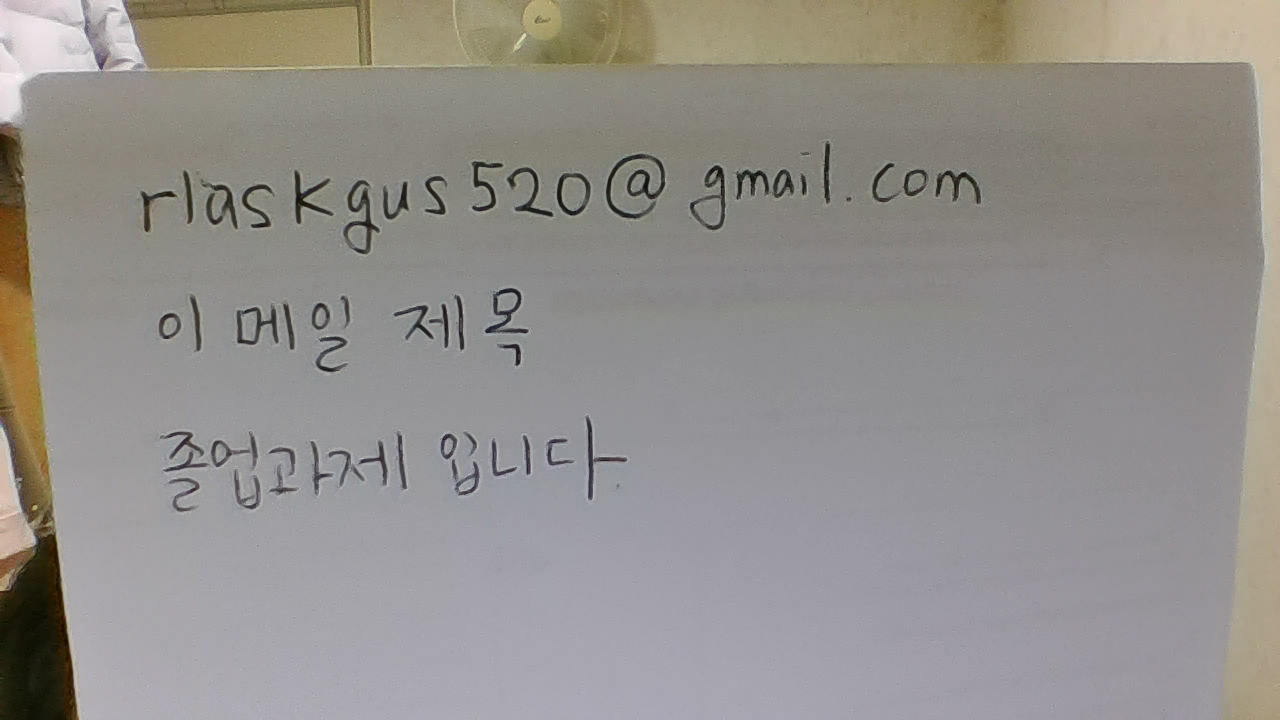 rlaskgus520@gmail.com
이메일 제목
졸업과제 입니다.